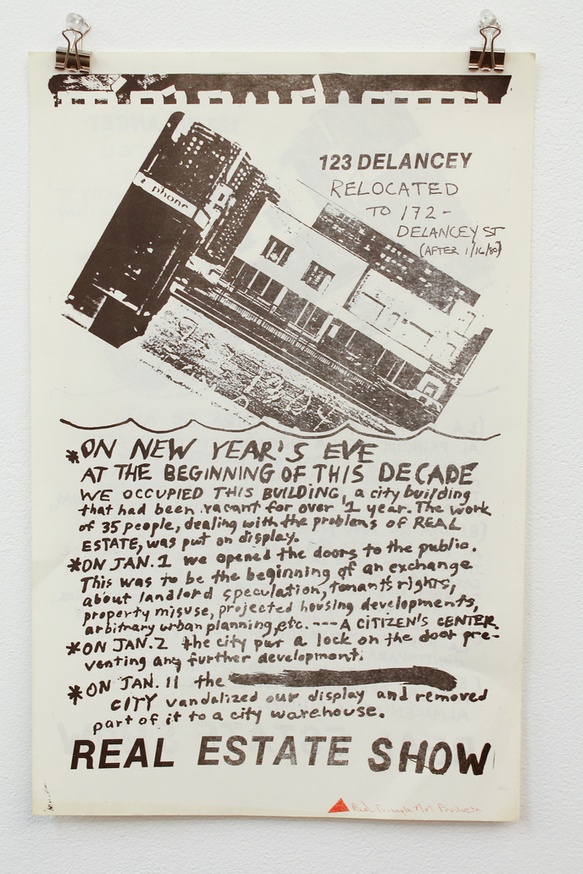 phone
123 DELANCEY
RELOCATED
TO 172-
DELANCEY ST
(AFTER 1/16/80)
*ON NEW YEAR'S EVE
AT THE BEGINNING OF THIS DECADE
WE OCCUPIED THIS BUILDING, a city building
that had been vacant for over 1 year. The work
of 35 people, dealing with the problems of REAL
ESTATE, was put on display.
*ON JAN. 1 we opened the doors to the public.
This was to be the beginning of an exchange
about landlord speculation, tenants rights,
property misuse, projected housing developments,
arbitrary urban planning, etc. --- A CITIZEN'S CENTER
*ON JAN. 2 the city put a lock on the door pre-
venting any further development.
*ON JAN. 11 the
CITY vandalized our display and removed
part of it to a city warehouse.
REAL ESTATE SHOW
Red Triangle